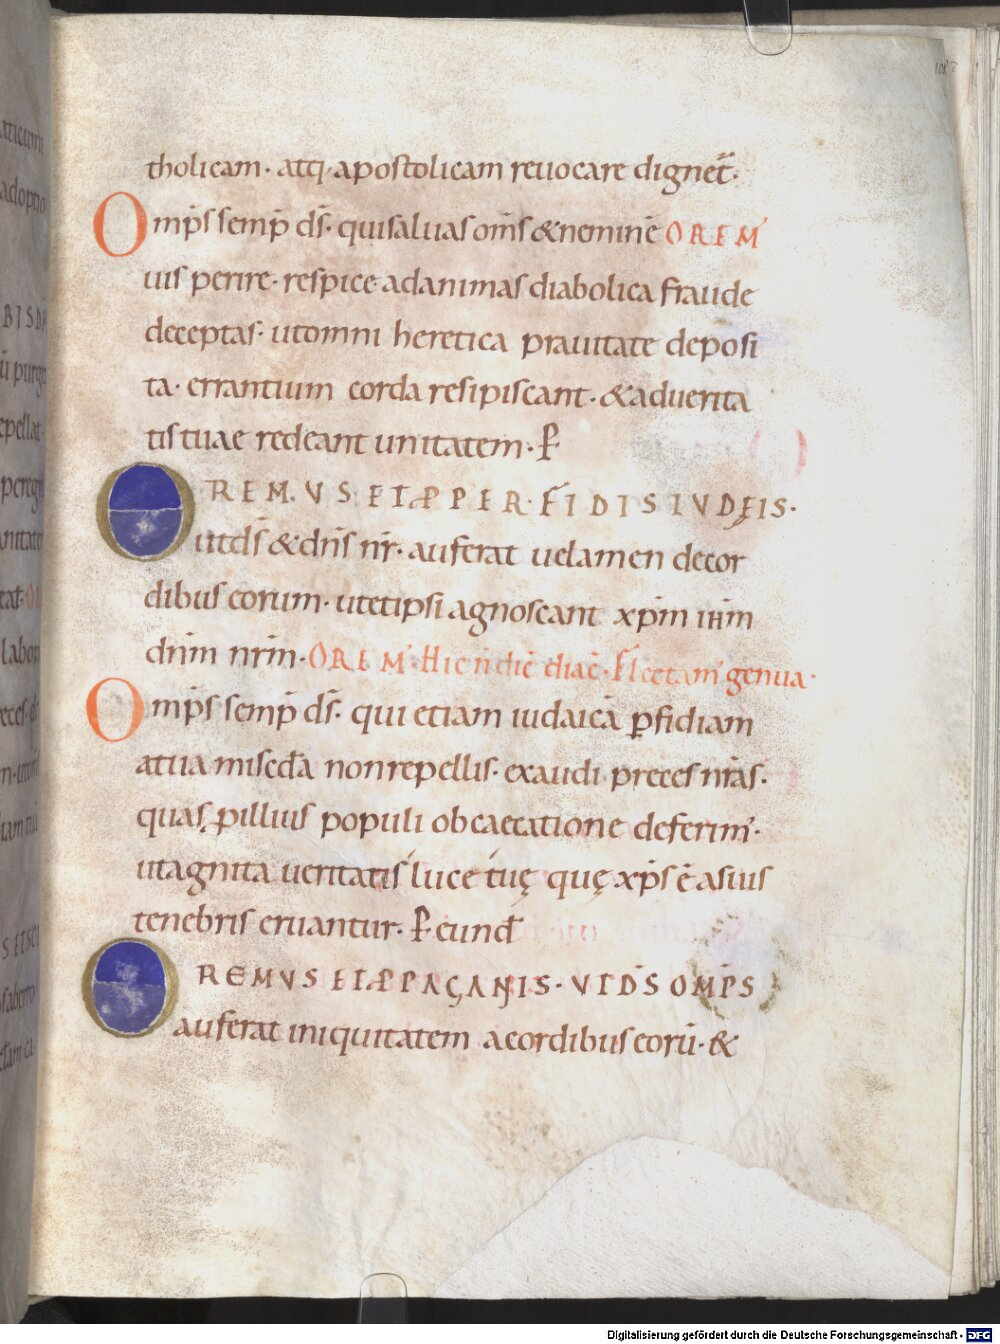 tholicam· atq· apostolicam reuocare dignet̄·
Omp̄s semp̄ ds̄· qui saluas om̄s & neminē OREM'
uis perire· respice ad animas diabolica fraude
deceptas· ut omni heretica prauitate deposi
ta· errantium corda resipiscant· & ad uerita
tis tuae redeant unitatem· P̄
OREMVS ET P̄ PERFIDIS IVDĘIS·
ut ds̄ & dn̄s nr̄· auferat uelamen de cor
dibus eorum· ut et ipsi agnoscant xp̄m ihm̄
dn̄m nr̄m· OREM' Hic n̄ dic̄ diac̄· Flectam' genua·
Omp̄s semp̄ ds̄· qui etiam iudaicā ꝑfidiam
a tua misc̄da non repellis· exaudi preces nr̄as·
quas ꝓ illius populi obcaecatione deferim'·
ut agnita ueritatis luce tuę quę xp̄s ē a suis
tenebris eruantur· P̄ eund̄
OREMVS ET P̄ PAGANIS· VT DS̄ OMP̄S
auferat iniquitatem a cordibus eorū· &
Digitalisierung gefördert durch die Deutsche Forschungsgemeinschaft - DFG